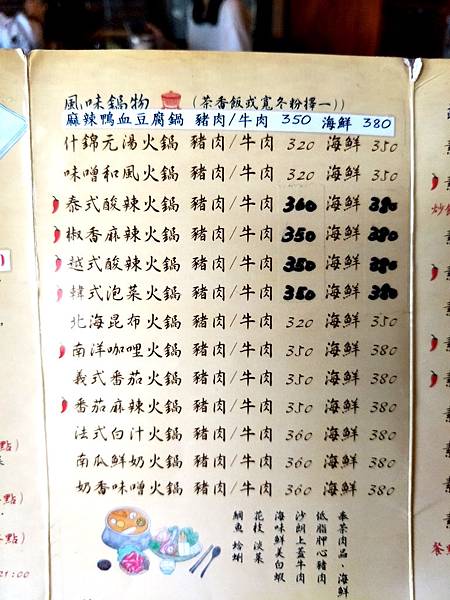 風味鍋物 (茶香飯或寬冬粉擇一))
麻辣鴨血豆腐鍋 豬肉/牛肉 350 海鮮 380
什錦元湯火鍋 豬肉/牛肉 320 海鮮 350
味噌和風火鍋 豬肉/牛肉 320 海鮮 350
泰式酸辣火鍋 豬肉/牛肉 360 海鮮 390
椒香麻辣火鍋 豬肉/牛肉 350 海鮮 380
越式酸辣火鍋 豬肉/牛肉 350 海鮮
韓式泡菜火鍋 豬肉/牛肉 350 海鮮 380
北海昆布火鍋 豬肉/牛肉 320 海鮮 350
南洋咖哩火鍋 豬肉/牛肉 350 海鮮 380
義式番茄火鍋 豬肉/牛肉 350 海鮮 380
番茄麻辣火鍋 豬肉/牛肉 350 海鮮 380
法式白汁火鍋 豬肉/牛肉 360 海鮮 380
南瓜鮮奶火鍋 豬肉/牛肉 360 海鮮 380
奶香味噌火鍋 豬肉/牛肉 360 海鮮 380
奉茶肉品、海鮮
低脂胛心豬肉
沙朗上蓋牛肉
海味鮮美白蝦
花枝 淡菜
鯛魚 蛤蜊
點)
點)
點)
21:00
炒飯